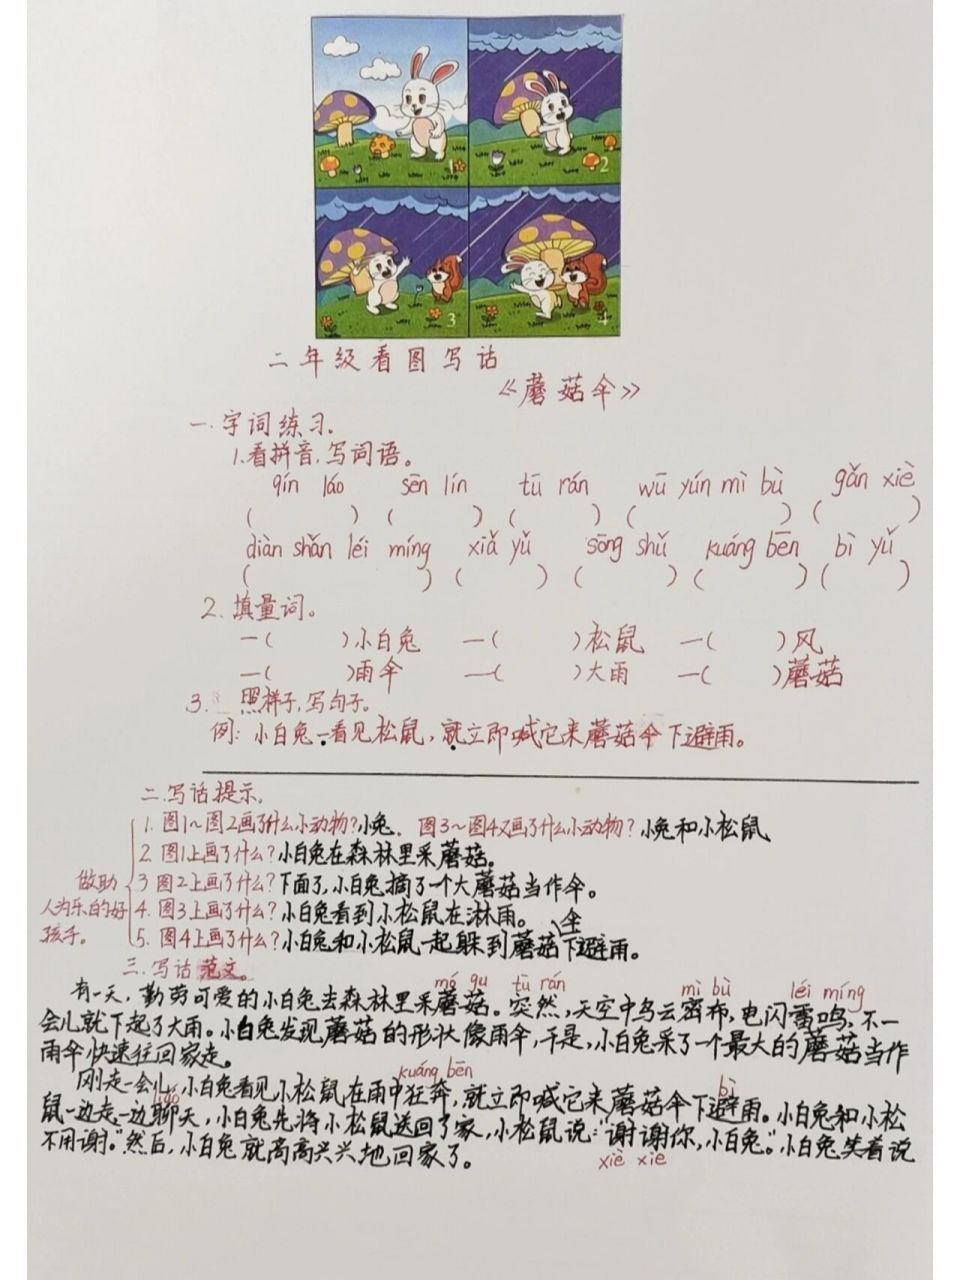 1
2
3
4
二年级看图写话
《蘑菇伞》
一.字词练习.
1.看拼音,写词语。
qín láo sēn lín tū rán wū yún mì bù gǎn xiè
( ) ( ) ( ) ( ) ( )
diàn shǎn léi míng xià yǔ sōng shǔ kuáng bēn bì yǔ
( ) ( ) ( ) ( ) ( )
2.填量词。
一( )小白兔 一( )松鼠 一( )风
一( )雨伞 一( )大雨 一( )蘑菇
3. 照样子,写句子。
例:小白兔一看见松鼠,就立即喊它来蘑菇伞下避雨。
二.写话提示.
1.图1~图2画了什么小动物?小兔. 图3~图4又画了什么小动物?小兔和小松鼠
2.图1上画了什么?小白兔在森林里采蘑菇。
做助人为乐的好孩子。
3 图2上画了什么?下面了,小白兔摘了一个大蘑菇当作伞。
4.图3上画了什么?小白兔看到小松鼠在淋雨。
5.图4上画了什么?小白兔和小松鼠一起躲到蘑菇伞下避雨。
三.写话范文。
mó gu tū rán mì bù léi míng
有一天,勤劳可爱的小白兔去森林里采蘑菇。突然,天空中乌云密布,电闪雷鸣,不一
会儿就下起了大雨。小白兔发现蘑菇的形状像雨伞,于是,小白兔采了一个最大的蘑菇当作
雨伞快速往回家走。
kuáng bēn
刚走一会儿,小白兔看见小松鼠在雨中狂奔,就立即喊它来蘑菇伞下避雨。小白兔和小松
liáo bì
鼠一边走一边聊天,小白兔先将小松鼠送回了家,小松鼠说:“谢谢你,小白兔。”小白兔笑着说
不用谢。”然后,小白兔就高高兴兴地回家了。
xiè xie